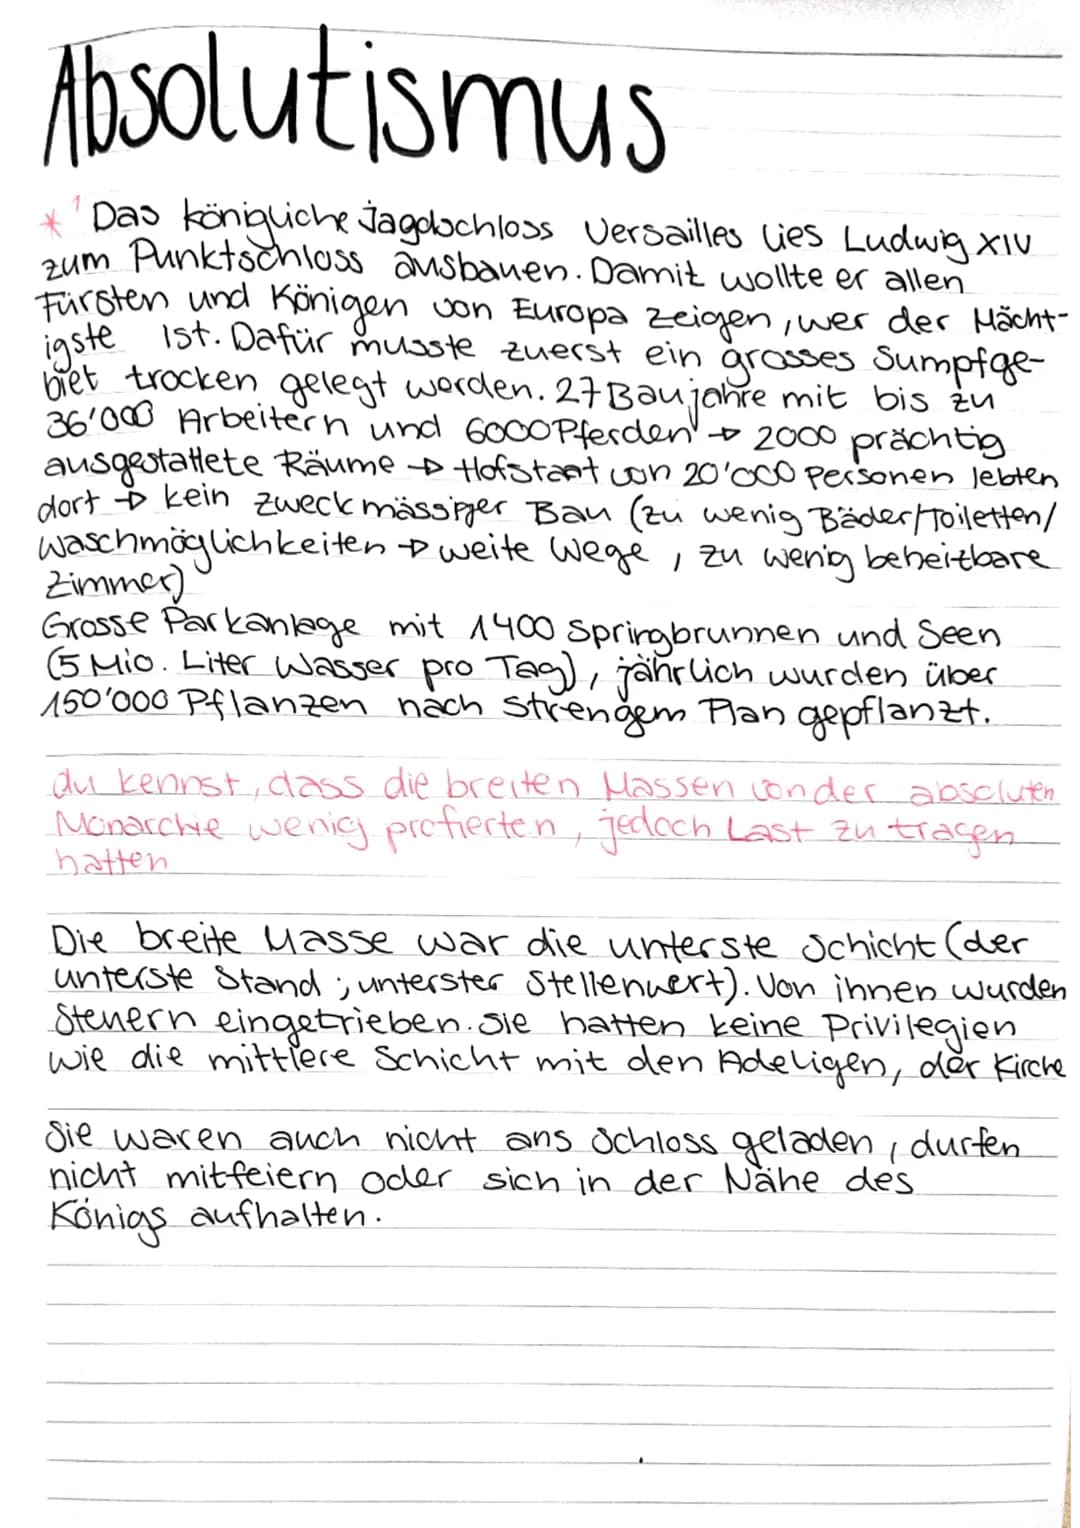 Absolutismus
*¹ Das königliche Jagdschloss Versailles lies Ludwig XIV
zum Punktschloss ausbauen. Damit wollte er allen
Fürsten und Königen von Europa zeigen, wer der Mächt-
igste Ist. Dafür musste zuerst ein grosses Sumpfge-
biet trocken gelegt werden. 27 Baujahre mit bis zu
36'000 Arbeitern und 6000 Pferden → 2000 prächtig
ausgestattete Räume → Hofstaat von 20'000 Personen lebten
dort → kein zweckmässiger Bau (zu wenig Bäder/Toiletten/
Waschmöglichkeiten → weite Wege, zu wenig beheitbare
Zimmer)
Grosse Parkanlage mit 1400 Springbrunnen und Seen
(5 Mio. Liter Wasser pro Tag), jährlich wurden über
150'000 Pflanzen nach strengem Plan gepflanzt.
du kennst, dass die breiten Massen von der absoluten
Monarchie wenig profierten, jedoch Last zu tragen
hatten
Die breite Masse war die unterste Schicht (der
unterste Stand; unterster Stellenwert). Von ihnen wurden
Steuern eingetrieben. Sie hatten keine Privilegien
wie die mittlere Schicht mit den Adeligen, der Kirche
Sie waren auch nicht ans Schloss geladen, durfen
nicht mitfeiern oder sich in der Nähe des
Königs aufhalten.